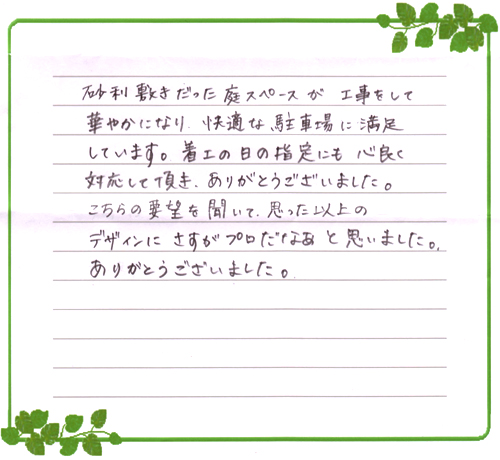 砂利敷きだった庭スペースが 工事をして
華やかになり、快適な駐車場に満足
しています。着工の日の指定にも 心良く
対応して頂き、ありがとうございました。
こちらの要望を聞いて、思った以上の
デザインに さすがプロだなあ と思いました。
ありがとうございました。